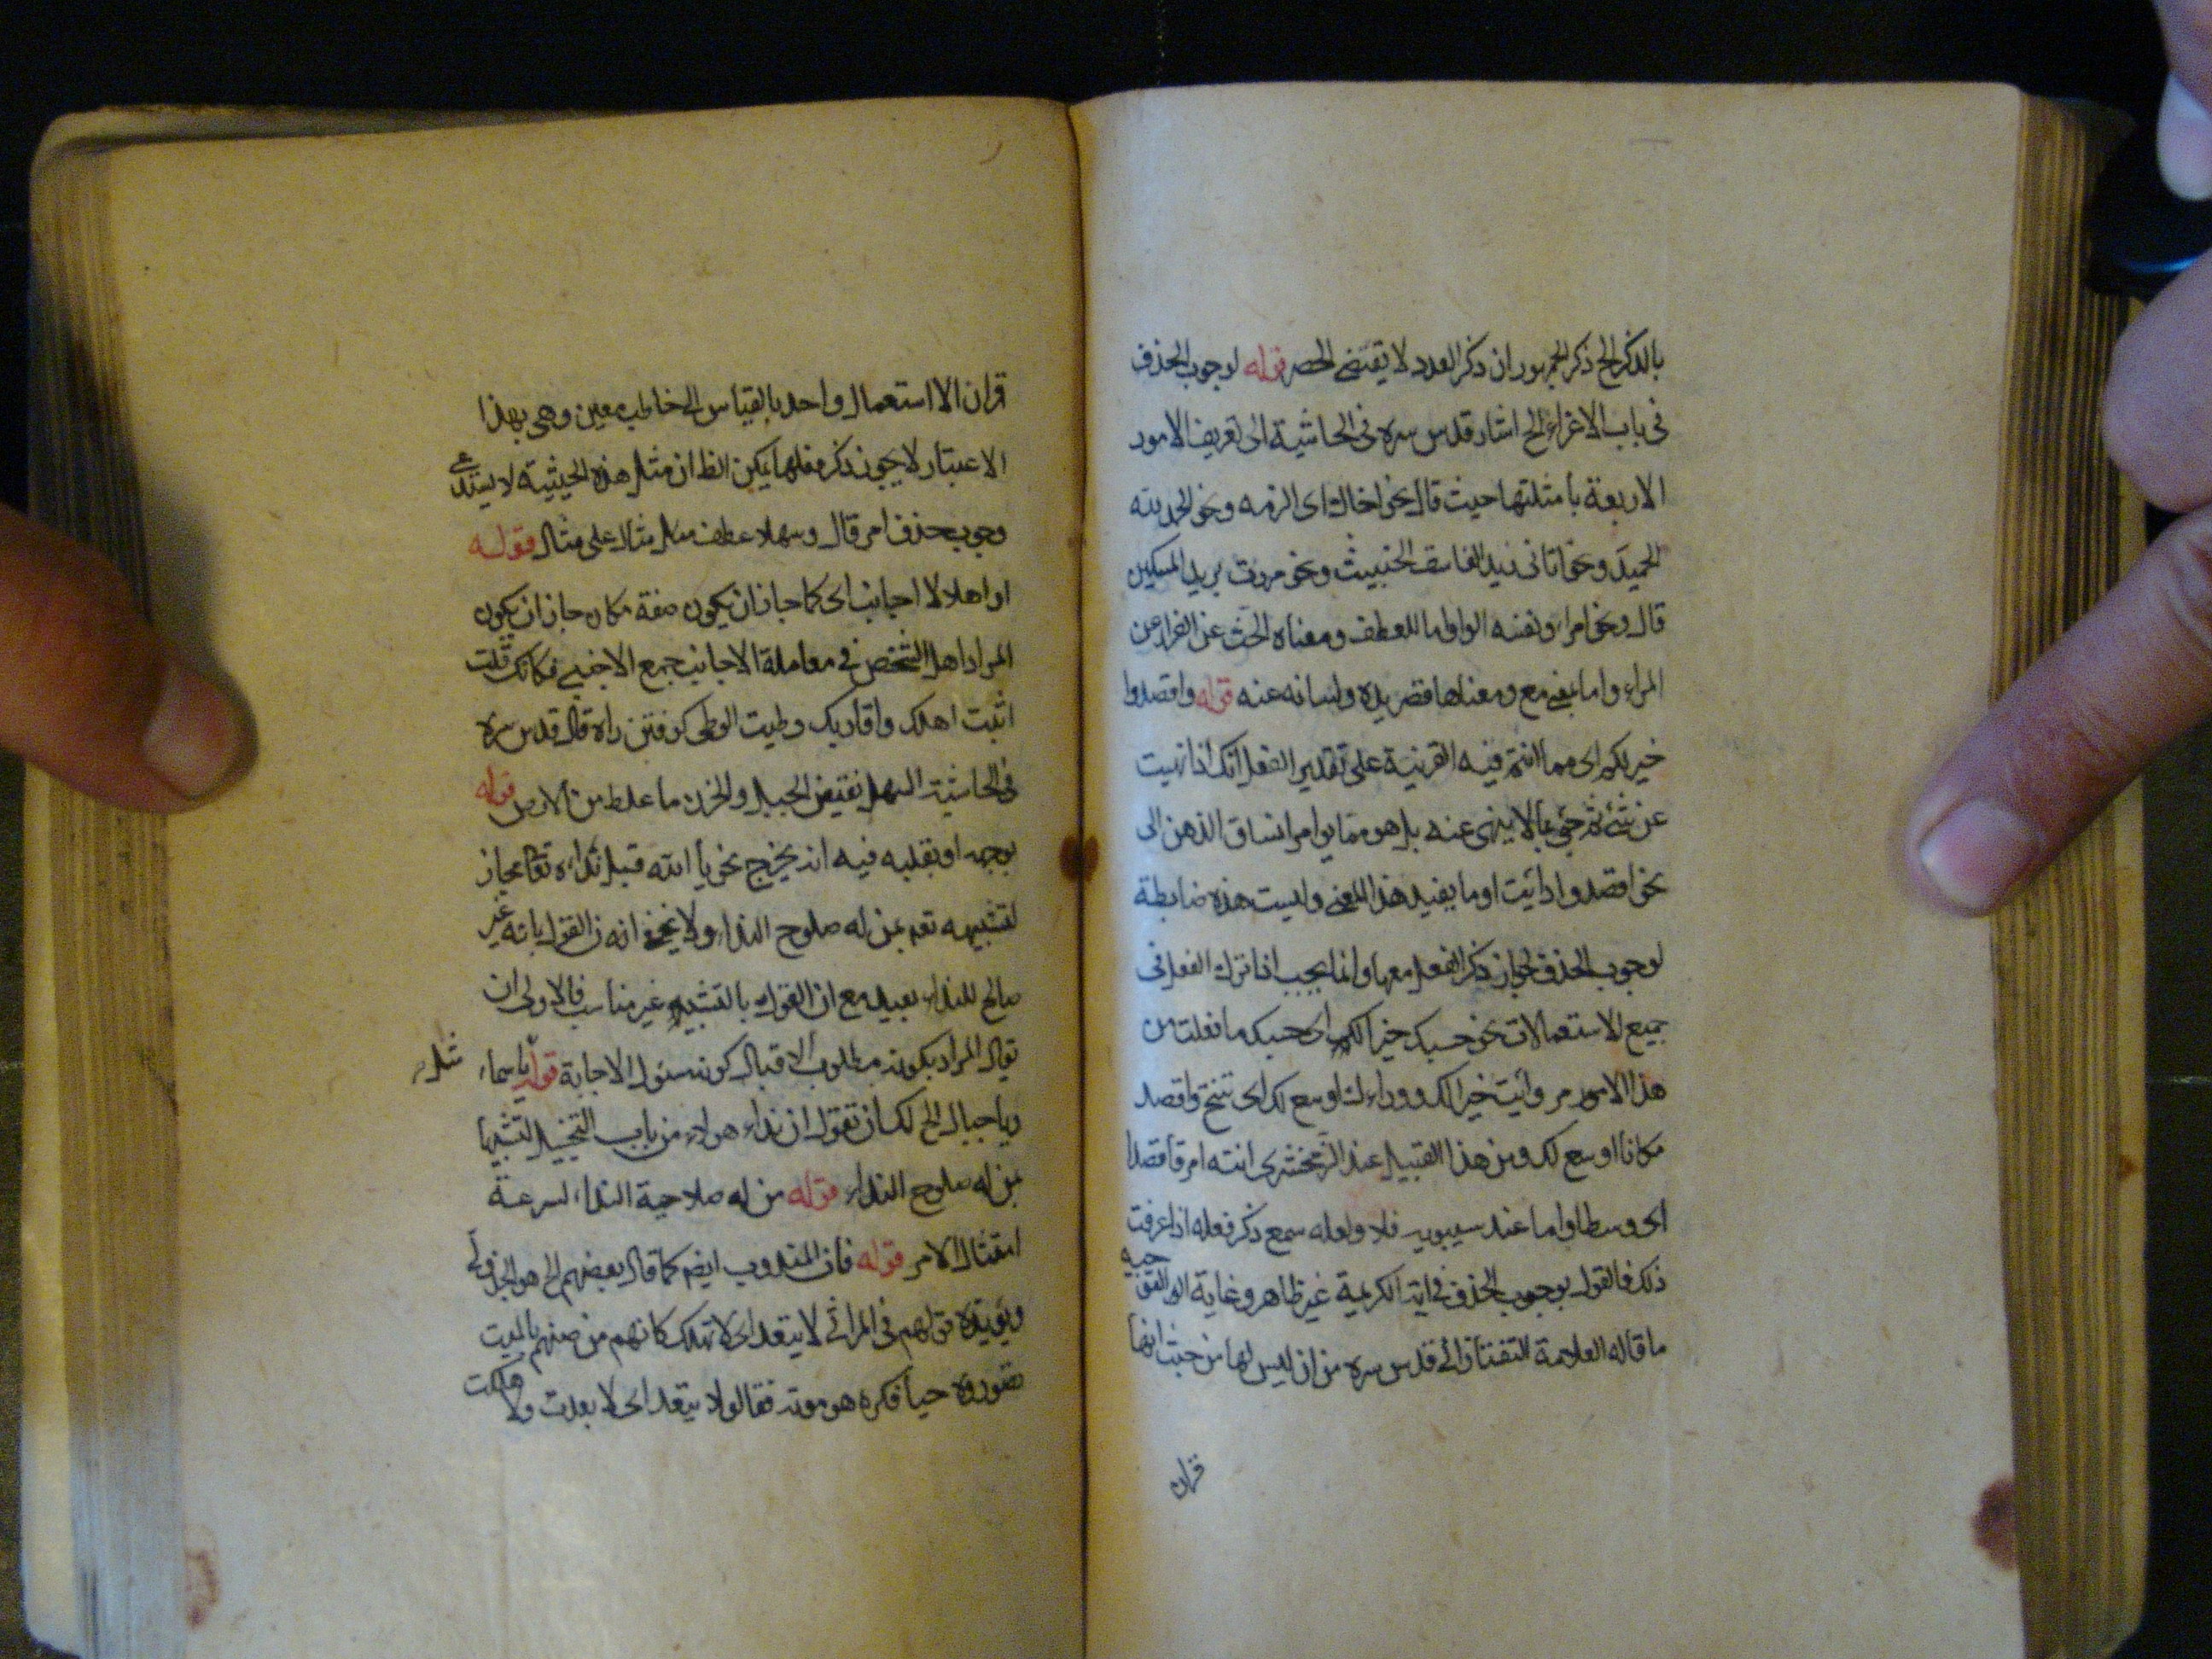 بالذكر الخ ذكر الجمهور ان ذكر العدد لا يقتضى الحصر قوله لوجوب الحذف
فى باب الاغراء الخ اشار قدس سره فى الحاشية الى تعريف الامور
الاربعة بامثلتها حيث قال نحو اخاك اى الزمه ونحو الحمد لله
الحميد ونحو اتانى زيد الفاسق الخبيث ونحو مررت بزيد المسكين
قال ونحو امراء ونفسه الواو اما للعطف ومعناه الحث عن الفراد عن
المراء واما بمعنى مع ومعناها قصر يده ولسانه عنه قوله واقصدوا
خير لكم اى مما انتم فيه القرينة على تقدير الفعل انك اذا نهيت
عن شئ ثم جئ بما لا ينهى عنه بل هو مما يوامر انساق الذهن الى
نحو اقصدوا او ائت او ما يفيد هذا المعنى وليست هذه ضابطة
لوجوب الحذف لجواز ذكر الفعل معها وانما يجب اذا ترك الفعل فى
جميع الاستعمالات نحو حسبك خيرا لك اى حسبك ما فعلت من
هذا الامور وايت خيرا لك ووراءك اوسع لك اى تنح واقصد
مكانا اوسع لك ومن هذا القبيل عند الزمخشرى انته امرا قاصدا
اى وسطا واما عند سيبويه فلا ولعله سمع ذكر فعله اذا عرفت
ذلك فالقول بوجوب الحذف فى اية الكريمة غير ظاهر وغاية التوجيه
ما قاله العلامة التفتازانى قدس سره من ان ليس لها من حيث انها
قران
قران الا استعمال واحد بالقياس الى مخاطب معين وهى بهذا
الاعتبار لا يجوز ذكر فعلها لكن الظ ان مثل هذه الحيثية لا يستدعى
وجوب حذف امر قال وسهلا عطف مثال على مثال قوله
او اهلا لا اجانب اى كما جاز ان يكون صفة مكان جاز ان يكون
المراد اهل الشخص فى معاملة الاجانب جمع الاجنبى فكانك قلت
اتيت اهلك واقاربك وطيت الوطى كرفتن راه قال قدس سره
فى الحاشية السهل نقيض الجبل والحزن ما غلظ من الارض قوله
بوجهه او بقلبه فيه انه يخرج نحو يا الله قيل نداءه تعالى مجاز
لتشبيهه تعالى بمن له صلوح النداء ولا يخفى انه ان القول بانه غير
صالح للنداء بعيد مع ان القول بالتشبيه غير مناسب فالاولى ان
يقال المراد بكونه مطلوب الاقبال كونه مسئول الاجابة قوله يا سماء
ويا جبال الخ لك ان تقول ان نداء هولاء من باب التخييل لتشبيها
بمن له صلوح النداء قوله من له صلاحية النداء لسرعة
امتثال الامر قوله فان المندوب ايضا كما قال بعضهم الخ هو الجزولى
ويؤيده قولهم فى المراثى لا تبعد اى لا تهلك كانهم من ضنهم بالميت
تصوروه حيا فكره هو موته فقالوا لا تبعد اى لا بعدت ولا هلكت